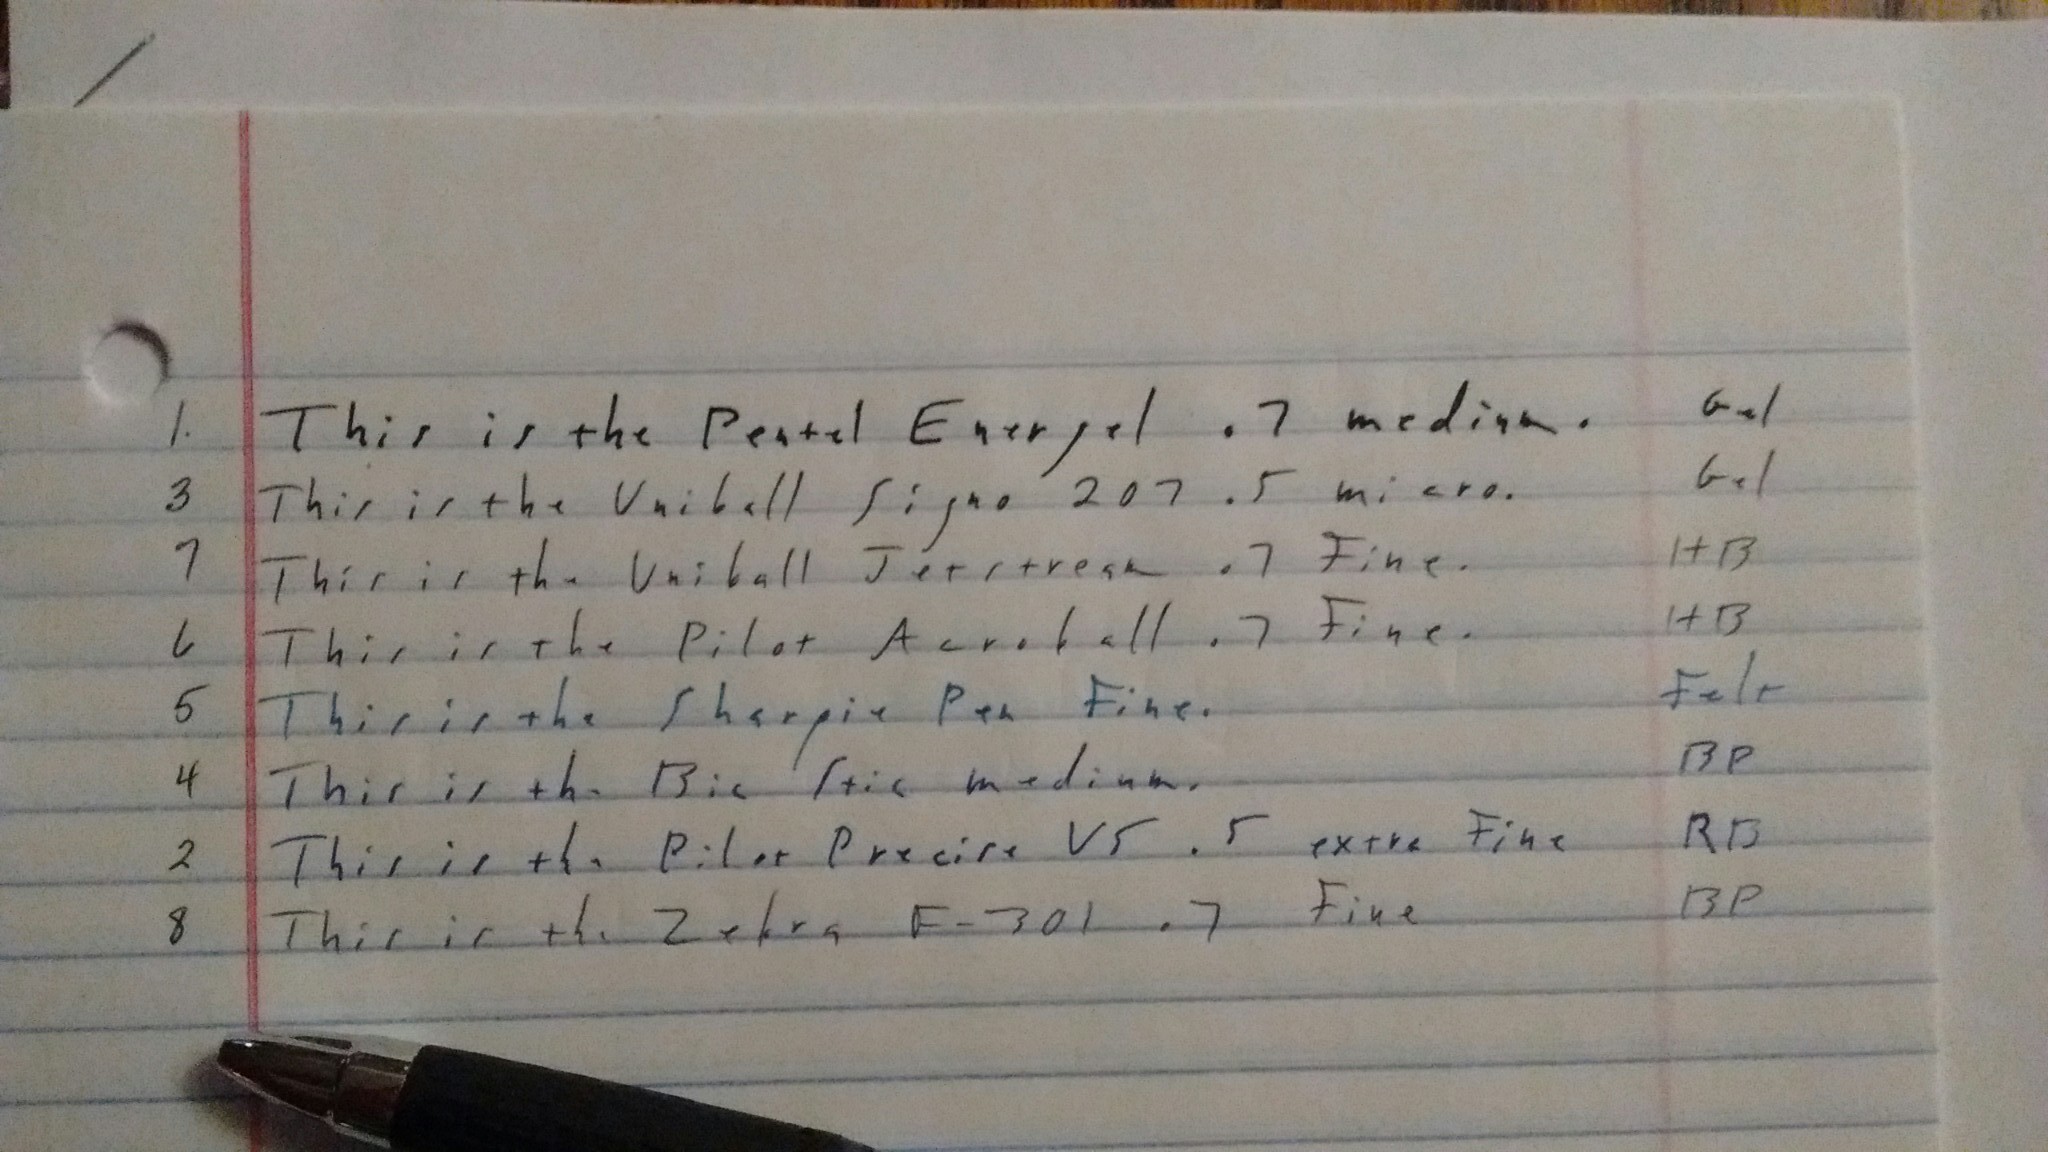 1. This is the Pentel Energel .7 medium. Gel
3 This is the Uniball Signo 207 .5 micro. Gel
7 This is the Uniball Jetstream .7 Fine. HB
6 This is the Pilot Acroball .7 Fine. HB
5 This is the Sharpie Pen Fine. Felt
4 This is the Bic Stic medium. BP
2 This is the Pilot Precise V5 .5 extra Fine RB
8 This is the Zebra F-301 .7 Fine BP